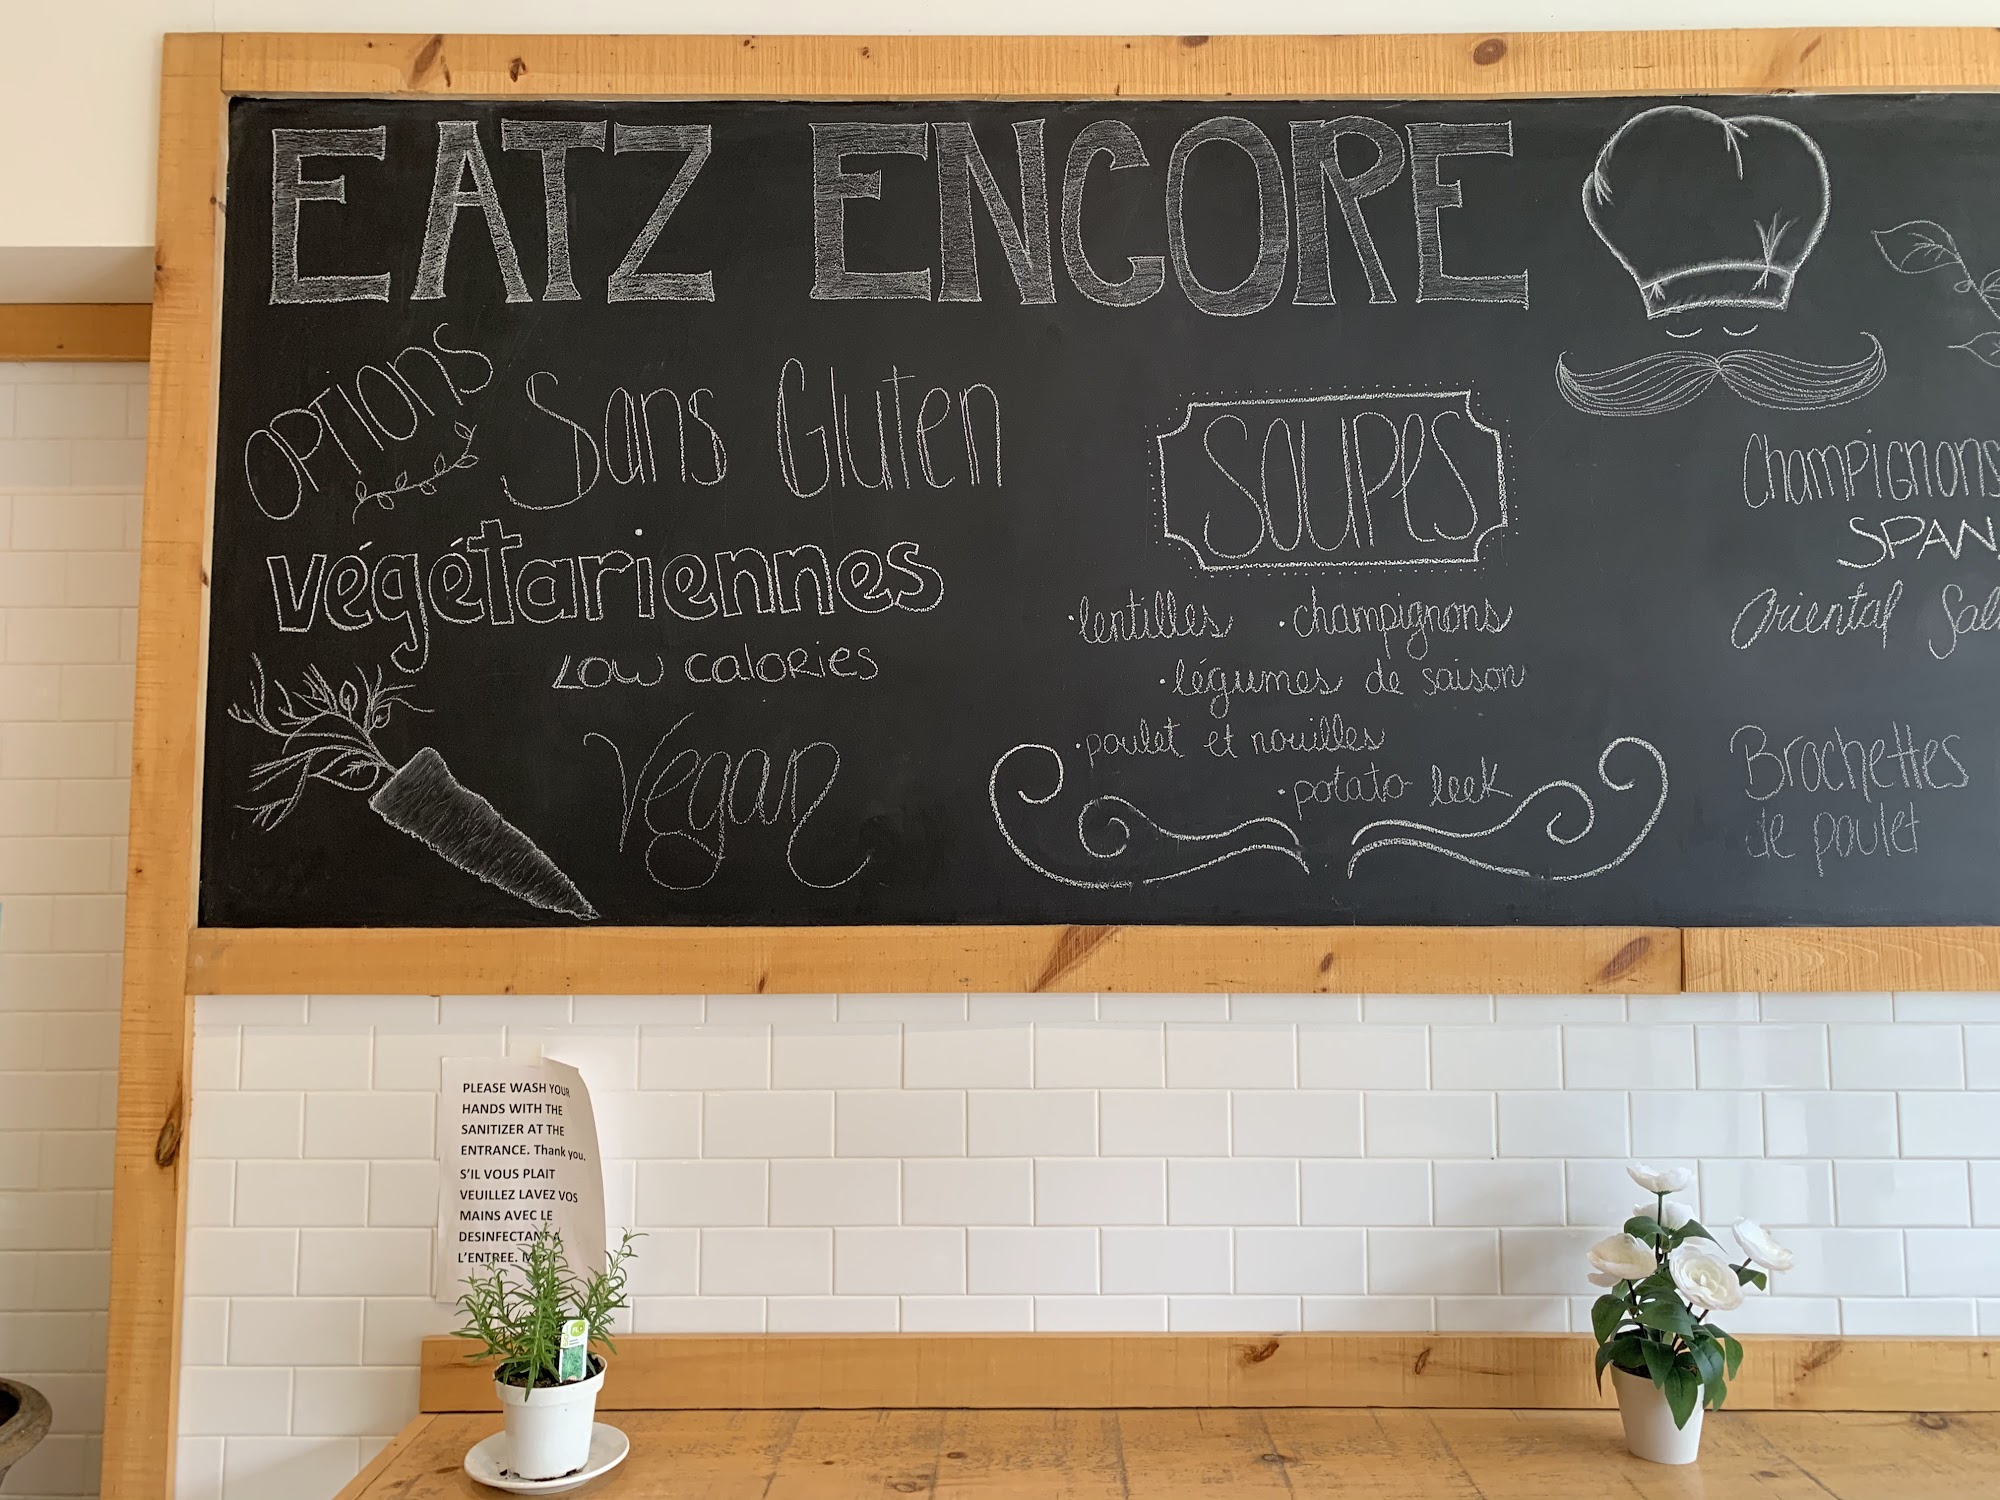 EATZ ENCORE
OPTIONS Sans Gluten
végétariennes
Low calories
Vegan
SOUPES
·lentilles ·champignons
·légumes de saison
·poulet et nouilles
·potato leek
Champignons
SPAN
Oriental Sal
Brochettes
de poulet
PLEASE WASH YOUR
HANDS WITH THE
SANITIZER AT THE
ENTRANCE. Thank you.
S'IL VOUS PLAIT
VEUILLEZ LAVEZ VOS
MAINS AVEC LE
DESINFECTANT A
L'ENTREE.